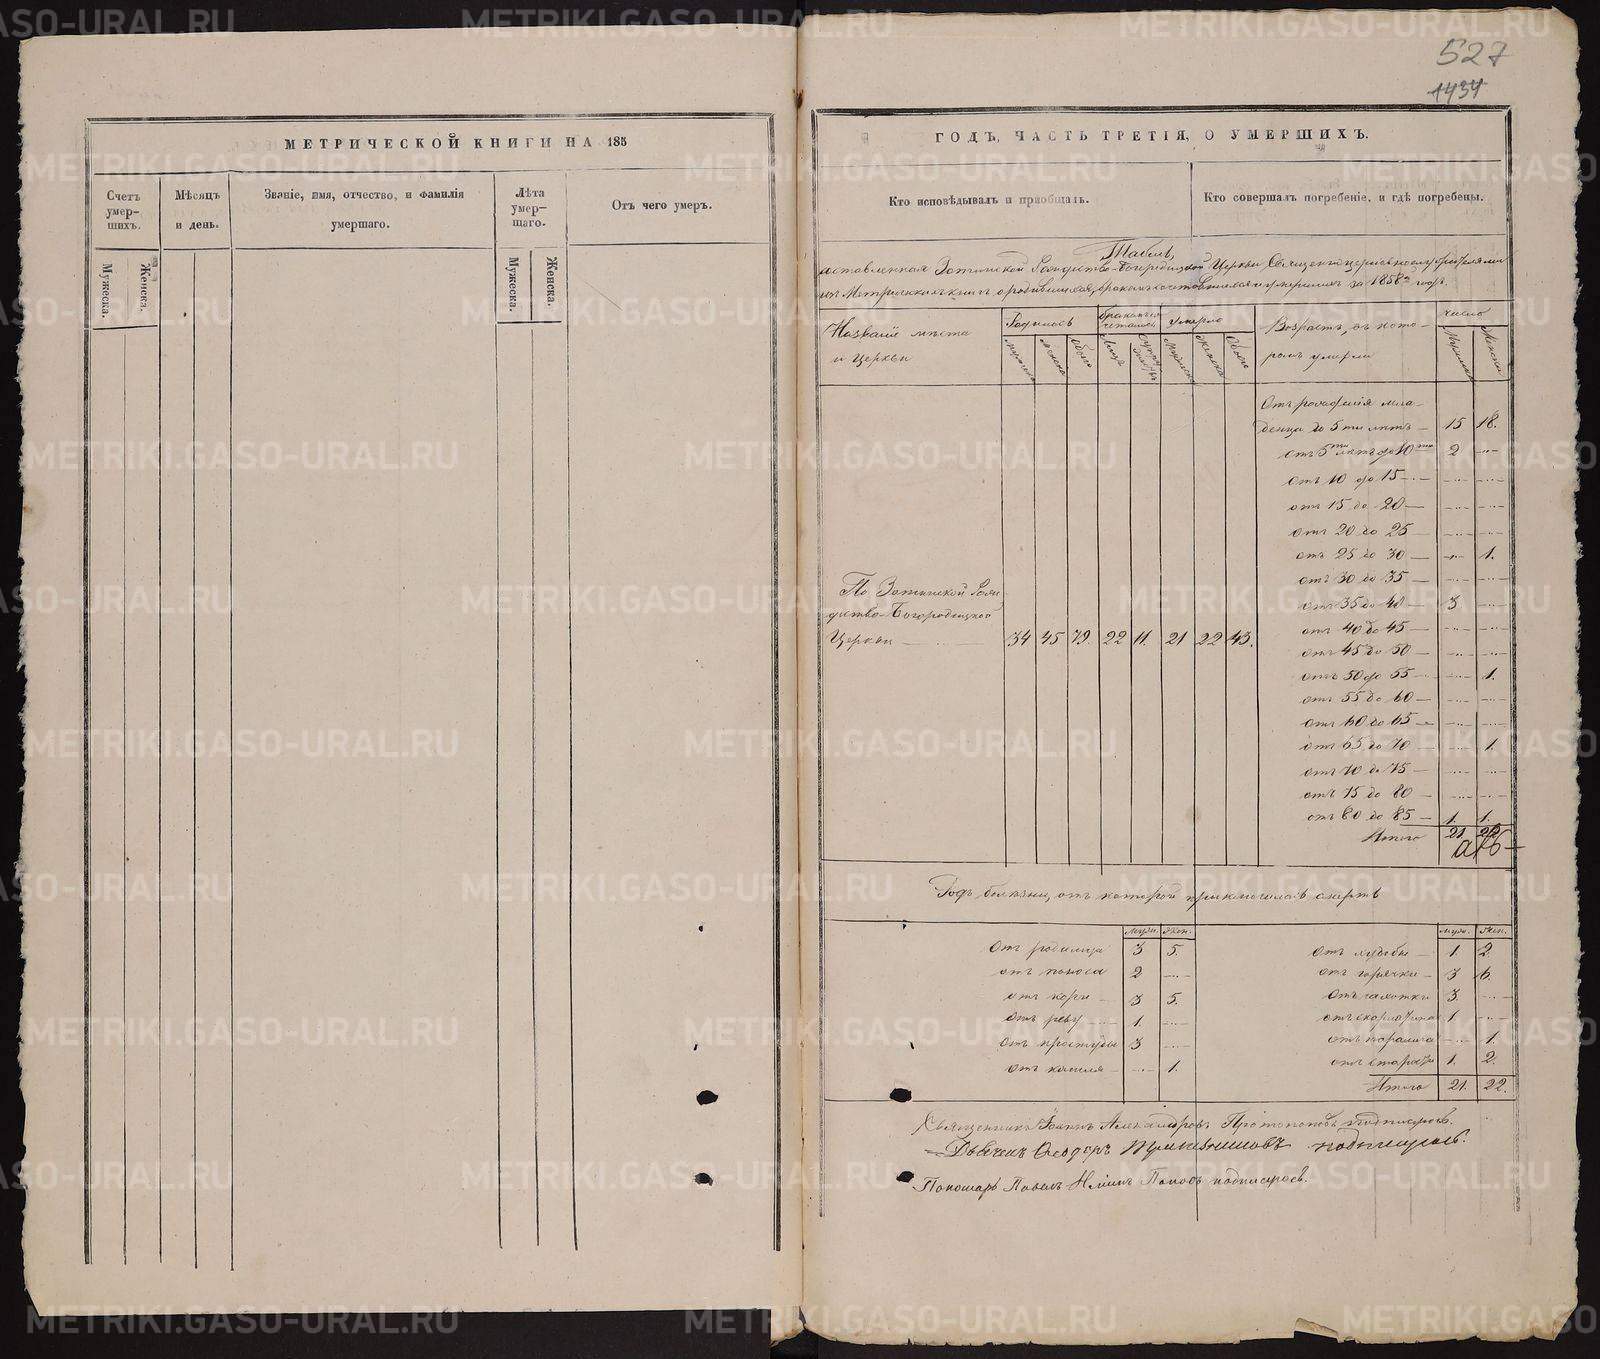 527
1434
МЕТРИЧЕСКОЙ КНИГИ НА 185
Счетъ умер-шихъ.
Мѣсяцъ и день.
Званіе, имя, отчество, и фамилія умершаго.
Лѣта умер-шаго.
Отъ чего умеръ.
Мужеска.
Женска.
Мужеска.
Женска.
ГОДЪ, ЧАСТЬ ТРЕТІЯ, О УМЕРШИХЪ.
Кто исповѣдывалъ и пріобщалъ.
Кто совершалъ погребеніе, и гдѣ погребены.
Табель,
составленная Рождество-Богородицкой Церкви Священноцерковнослужителями
изъ Метрическихъ книгъ о родившихся, бракомъ сочетавшихся и умершихъ за 1858й годъ.
Названіе мѣста и Церкви
Родилось
бракомъ сочетались
умерло
Возрастъ, въ кото-ромъ умерли
число
мужеска
женска
обоего
Лица
Мужеска
Женска
Обоего
Мужеска
Женска
Отъ рожденія мла-
денца до 5ти лѣтъ — 15 18.
отъ 5ти лѣтъ до 10ти 2 ....
отъ 10 до 15 — .... ....
отъ 15 до 20 — .... ....
отъ 20 до 25 .... ....
отъ 25 до 30 — .... 1.
отъ 30 до 35 .... ....
отъ 35 до 40 — 3. ....
отъ 40 до 45 — .... ....
отъ 45 до 50 — .... ....
отъ 50 до 55 — .... 1.
отъ 55 до 60 — .... ....
отъ 60 до 65 — .... ....
отъ 65 до 70 — .... 1.
отъ 70 до 75 — .... ....
отъ 75 до 80 — .... ....
отъ 80 до 85 — 1. 1.
Итого 21 22
По Рож-
дество-Богородицкой
Церкви 34 45 79. 22 11. 21 22 43.
Родъ болѣзни, отъ которой приключилась смерть
муж. жен.
муж. жен.
Отъ родимца 3 5.
отъ поноса 2 ....
отъ кори 3 5.
отъ реву 1. ....
отъ простуды 3 ....
отъ кашля .... 1.
отъ худобы 1. 2.
отъ горячки — 3 6.
отъ чахотки 3. ....
отъ скорбута 1. ....
отъ паралича .... 1.
отъ старости 1. 2.
Итого 21. 22.
Священникъ Іоаннъ Александровъ Протопоповъ подписуюсь.
Дьячекъ Ѳеодоръ подписуюсь.
Пономарь Павелъ Попов подписуюсь.
METRIKI.GASO-URAL.RU